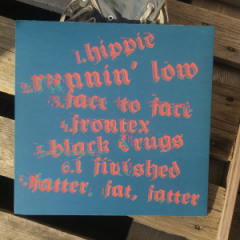 1.hippie
2.runnin' low
3.face to face
4.frontex
5.black drugs
6.I finished
7.fatter, fat, fatter